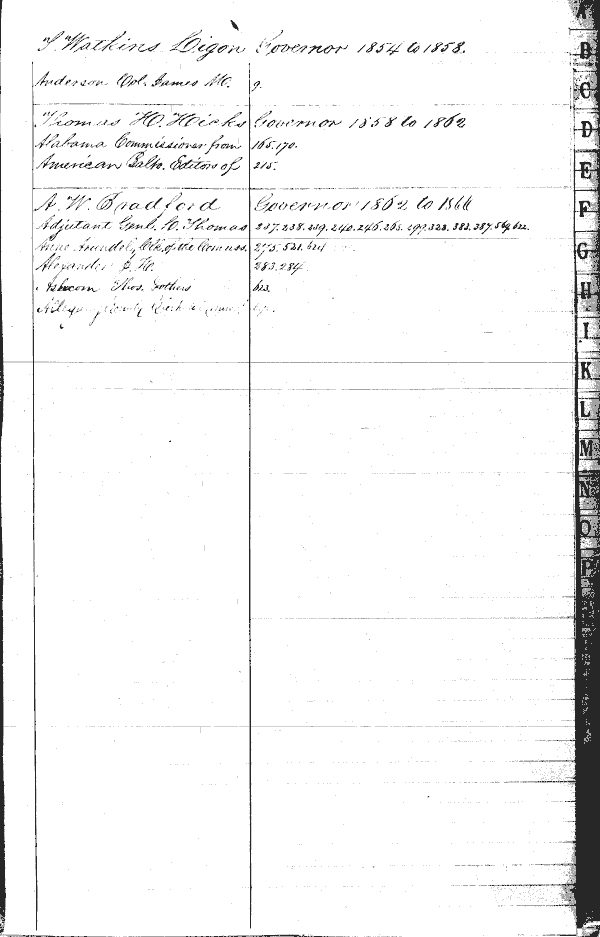 T Watkins Ligon Governor 1854 to 1858.
Anderson Col. James M. 9.
Thomas H. Hicks Governor 1858 to 1862
Alabama Commissioner from 165.170.
American Balto. Editors of 215.
A. W. Bradford Governor 1862 to 1866
Adjutant Genl. L. Thomas 237.238.239.240.246.265.299.323.383.387.564.622.
Anne Arundel, Clk. of the Comrs. 275.521.621
Alexander 283.284
Ashcom Thos. & others 623
County Clerk
A
B
C
D
E
F
G
H
I
K
L
M
N
O
P